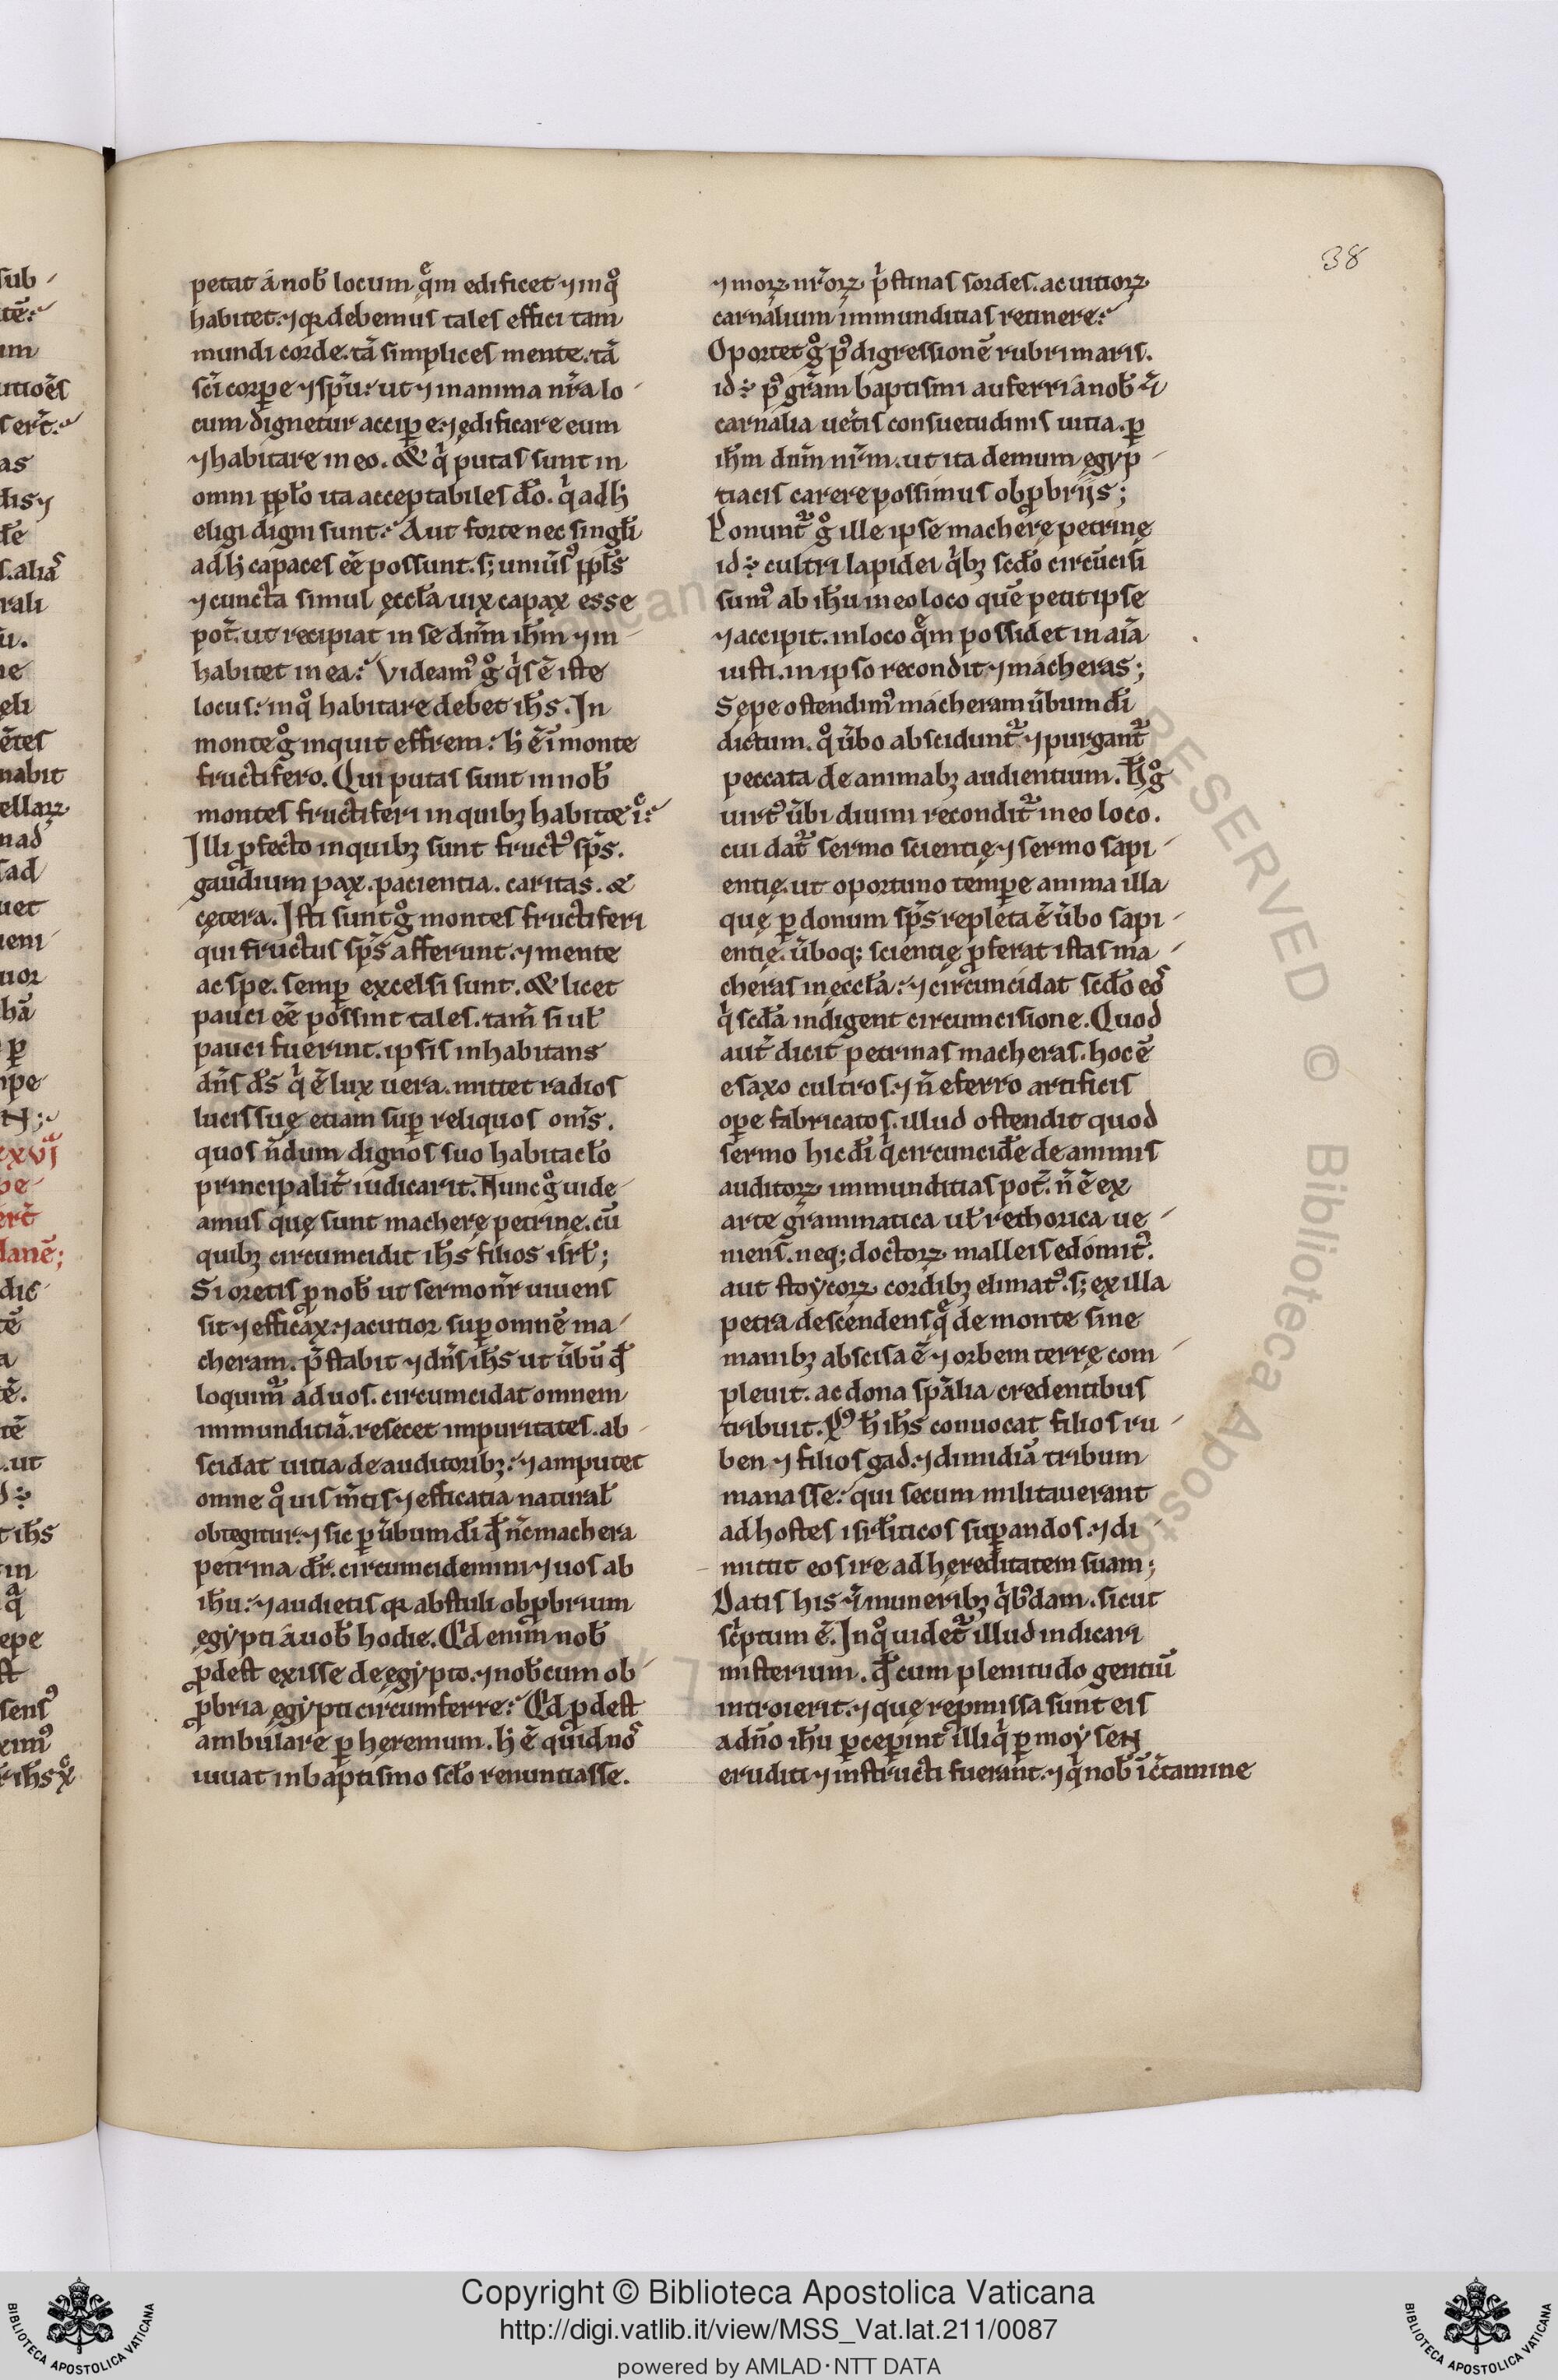 38
petat a nob̄ locum quem edificet ⁊ in qͦ
habitet. ⁊ qꝛ debemus tales effici tam
mundi corde. tā simplices mente. tā
sc̄i corꝑe ⁊ sp̄u. ut ⁊ in anima nr̄a lo-
cum dignetur acciꝑe. ⁊ ędificare eum
⁊ habitare in eo. & qͥ putas sunt in
omni pp̄lo ita acceptabiles dō. qͥ ad h̄
eligi digni sunt? Aut forte nec singl̄i
ad h̄ capaces eē possunt. s; uniūsꝰ ppl̄s
⁊ cuncta simul ęccl̄a uix capax esse
pot̄. ut recipiat in se dn̄m ih̄m ⁊ in-
habitet in ea? Videamꝰ gͦ qͥs ē iste
locus? in qͦ habitare debet ih̄s. In
monte gͦ inquit effrem. h̄ ē ī monte
fructifero. Qui putas sunt in nob̄
montes fructiferi in quibꝫ habitet ih̄c?
Illi ꝓfecto in quibꝫ sunt fructꝰ sp̄s.
gaudium pax. pacientia. caritas. &
cętera. Isti sunt gͦ montes fructiferi
qui fructus sp̄s afferunt. ⁊ mente
ac spe. semꝑ excelsi sunt. & licet
pauci eē possint tales. tam̄ si ul̄
pauci fuerint. ipsis inhabitans
dn̄s ds̄ qͥ ē lux uera. mittet radios
lucis suę etiam suꝑ reliquos om̄s.
quos n̄dum dignos suo habitacl̄o
principalit̄ iudicarit. Nunc gͦ uide-
amus quę sunt macherę petrinę. cū
quibꝫ circumcidit ih̄s filios isrl̄;
Si oretis ꝓ nob̄ ut sermo nr̄ uiuens
sit ⁊ efficax. ⁊ acutior suꝑ omnē ma-
cheram. p̄stabit ⁊ dn̄s ih̄s ut ūbū qd̄
loquimꝰ ad uos. circumcidat omnem
immunditiā. resecet impuritates. ab-
scidat uitia de auditoribꝫ. ⁊ amputet
omne qͦ uis m̄tis ⁊ efficatia natural̄
obtegitur. ⁊ sic ꝑ ūbum dī qd̄ nc̄ machera
petrina dr̄. circumcidemini ⁊ uos ab
ih̄u. ⁊ audietis qꝛ abstuli obꝓbrium
ęgẏpti a uob̄ hodie. Qd enim nob̄
ꝓdest exisse de ęgẏpto. ⁊ nob̄cum ob-
ꝓbria ęgẏpti circumferre? Qd ꝓdest
ambulare ꝑ heremum. h̄ ē quid nos
iuuat in baptismo scl̄o renuntiasse.
⁊ moꝝ nr̄oꝝ pͥstinas sordes. ac uitioꝝ
carnalium immunditias retinere?
Oportet gͦ pꝰ digressionē rubri maris.
id÷ pꝰ gr̄am baptismi auferri a nob̄ ⁊̄
carnalia uet̄is consuetudinis uitia. ꝑ
ih̄m dn̄m nr̄m. ut ita demum ęgyp-
tiacis carere possimus obꝓbrijs;
Ponunt᷑ gͦ ille ipse macherę petrinę
id÷ cultri lapidei qͥbꝫ scd̄o circūcisi
sumꝰ ab ih̄u in eo loco quē petit ipse
⁊ accipit. in loco quem possidet in aīa
iusti. in ipso recondit ⁊ macheras;
Sępe ostendimꝰ macheram ūbum dī
dictum. qͦ ūbo abscidunt᷑ ⁊ purgant᷑
peccata de animabꝫ audientium. H̄ gͦ
uirtꝰ ūbi diuini recondit᷑ in eo loco.
cui dat᷑ sermo scientię ⁊ sermo sapi-
entię. ut oportuno temꝑe anima illa
quę ꝑ donum sp̄s repleta ē ūbo sapi-
entię. ūboq; scientię ꝓferat istas ma-
cheras in ęccl̄a. ⁊ circuncidat scd̄o eos
qͥ scd̄a indigent circumcisione. Quod
aut̄ dicit petrinas macheras. hoc ē
e saxo cultros. ⁊ n̄ e ferro artificis
oꝑe fabricatos. illud ostendit quod
sermo hic dī qͥ circuncid̄e de animis
auditoꝝ immunditias pot̄. n̄ ē ex
arte grammatica ul̄ rethorica ue-
niens. neq; doctoꝝ malleis edomitꝰ.
aut stoẏcoꝝ cordibꝫ elimatꝰ. s; ex illa
petra descendens quę de monte sine
manibꝫ abscisa ē ⁊ orbem terrę com-
pleuit. ac dona sp̄alia credentibus
tribuit. Pꝰ h̄ ih̄s conuocat filios ru-
ben ⁊ filios gad. ⁊ dimidiā tribum
manasse. qui secum militauerant
ad hostes isrl̄iticos suꝑandos. ⁊ di-
mittit eos ire ad hereditatem suam;
Datis his ⁊̄ muneribꝫ qͥbꝰdam. sicut
scͥptum ē. In qͦ uidet᷑ illud indicari
misterium. qd̄ cum plenitudo gentiū
introierit. ⁊ quę reꝓmissa sunt eis
a dn̄o ih̄u ꝑceꝑint illi qͥ ꝑ moẏsen
eruditi ⁊ instructi fuerant. ⁊ qͥ nob̄ ī c̄tamine
Copyright © Biblioteca Apostolica Vaticana
http://digi.vatlib.it/view/MSS_Vat.lat.211/0087
powered by AMLAD·NTT DATA